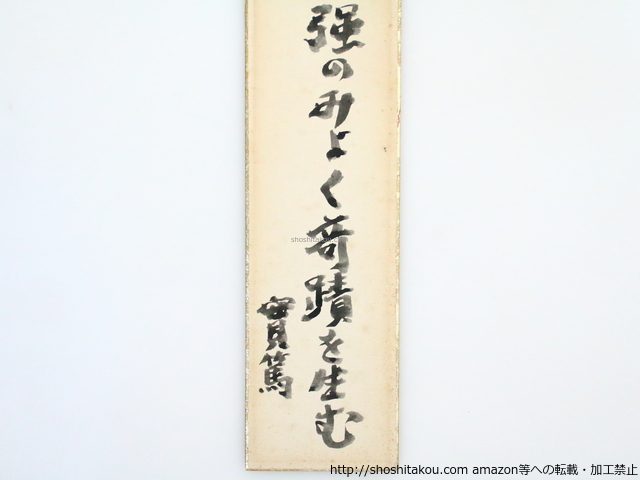 強のみよく奇蹟を生む
實篤
shoshitakou.com
http://shoshitakou.com amazon等への転載・加工禁止